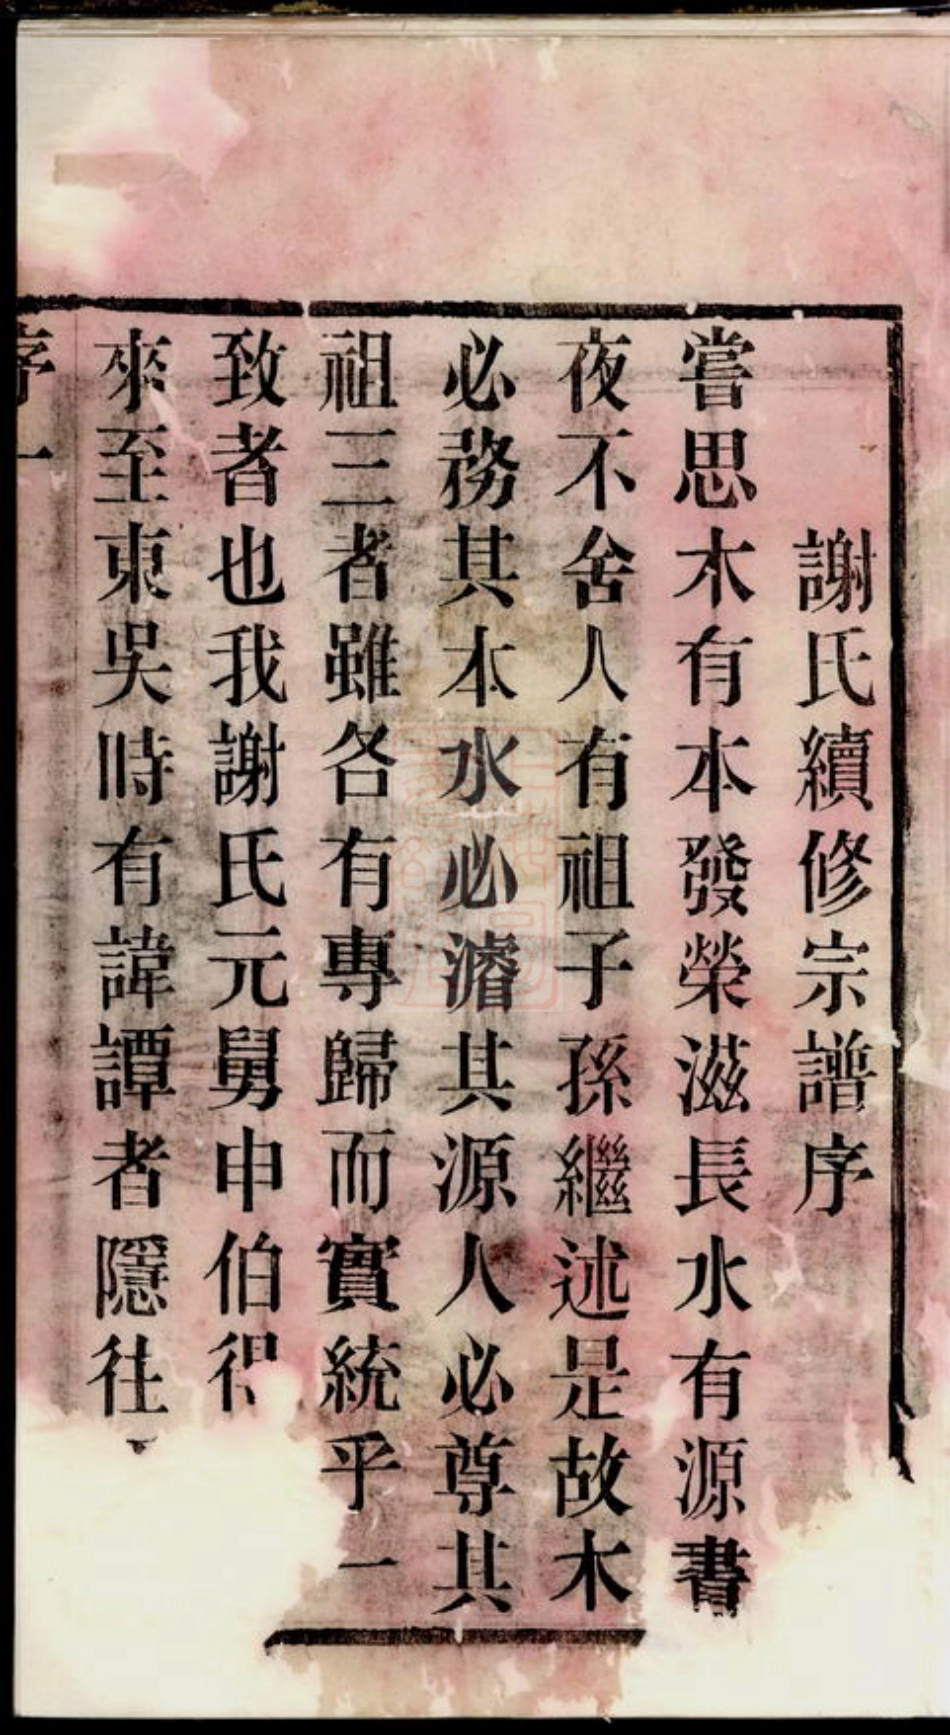 謝氏續修宗譜序
嘗思木有本發榮滋長水有源書
夜不舍人有祖子孫繼述是故木
必務其本水必濬其源人必尊其
祖三者雖各有專歸而實統乎一
致者也我謝氏元舅申伯得
來至東吳時有諱譚者隱往
序一